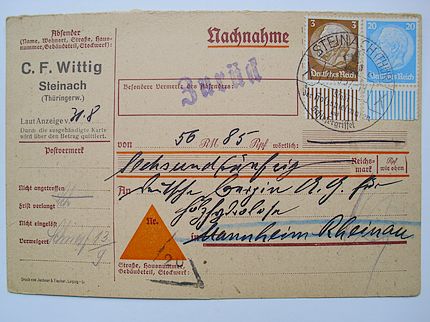 Absender
(Name, Wohnort, Straße, Haus-
nummer, Gebäudeteil, Stockwerk)
C. F. Wittig
Steinach
(Thüringerw.)
Laut Anzeige v. 31.8
Durch die ausgehändigte Karte
wird über den Betrag quittiert.
Postvermerk
Nicht angetroffen
Frist verlangt
Nicht eingelöst
Verweigert
Nachnahme
Besondere Vermerke des Absenders:
Zurück
3 3
Deutsches Reich
20 20
Deutsches Reich
STEINACH
von 56 RM 85 Rpf wörtlich:
Sechsundfünfzig
Reichs-
mark
Rpf
wie oben
An Deutsche Bergin A.G. für
Holzhydrolose
in Mannheim Rheinau
Nr.
Straße, Hausnummer,
Gebäudeteil, Stockwerk: